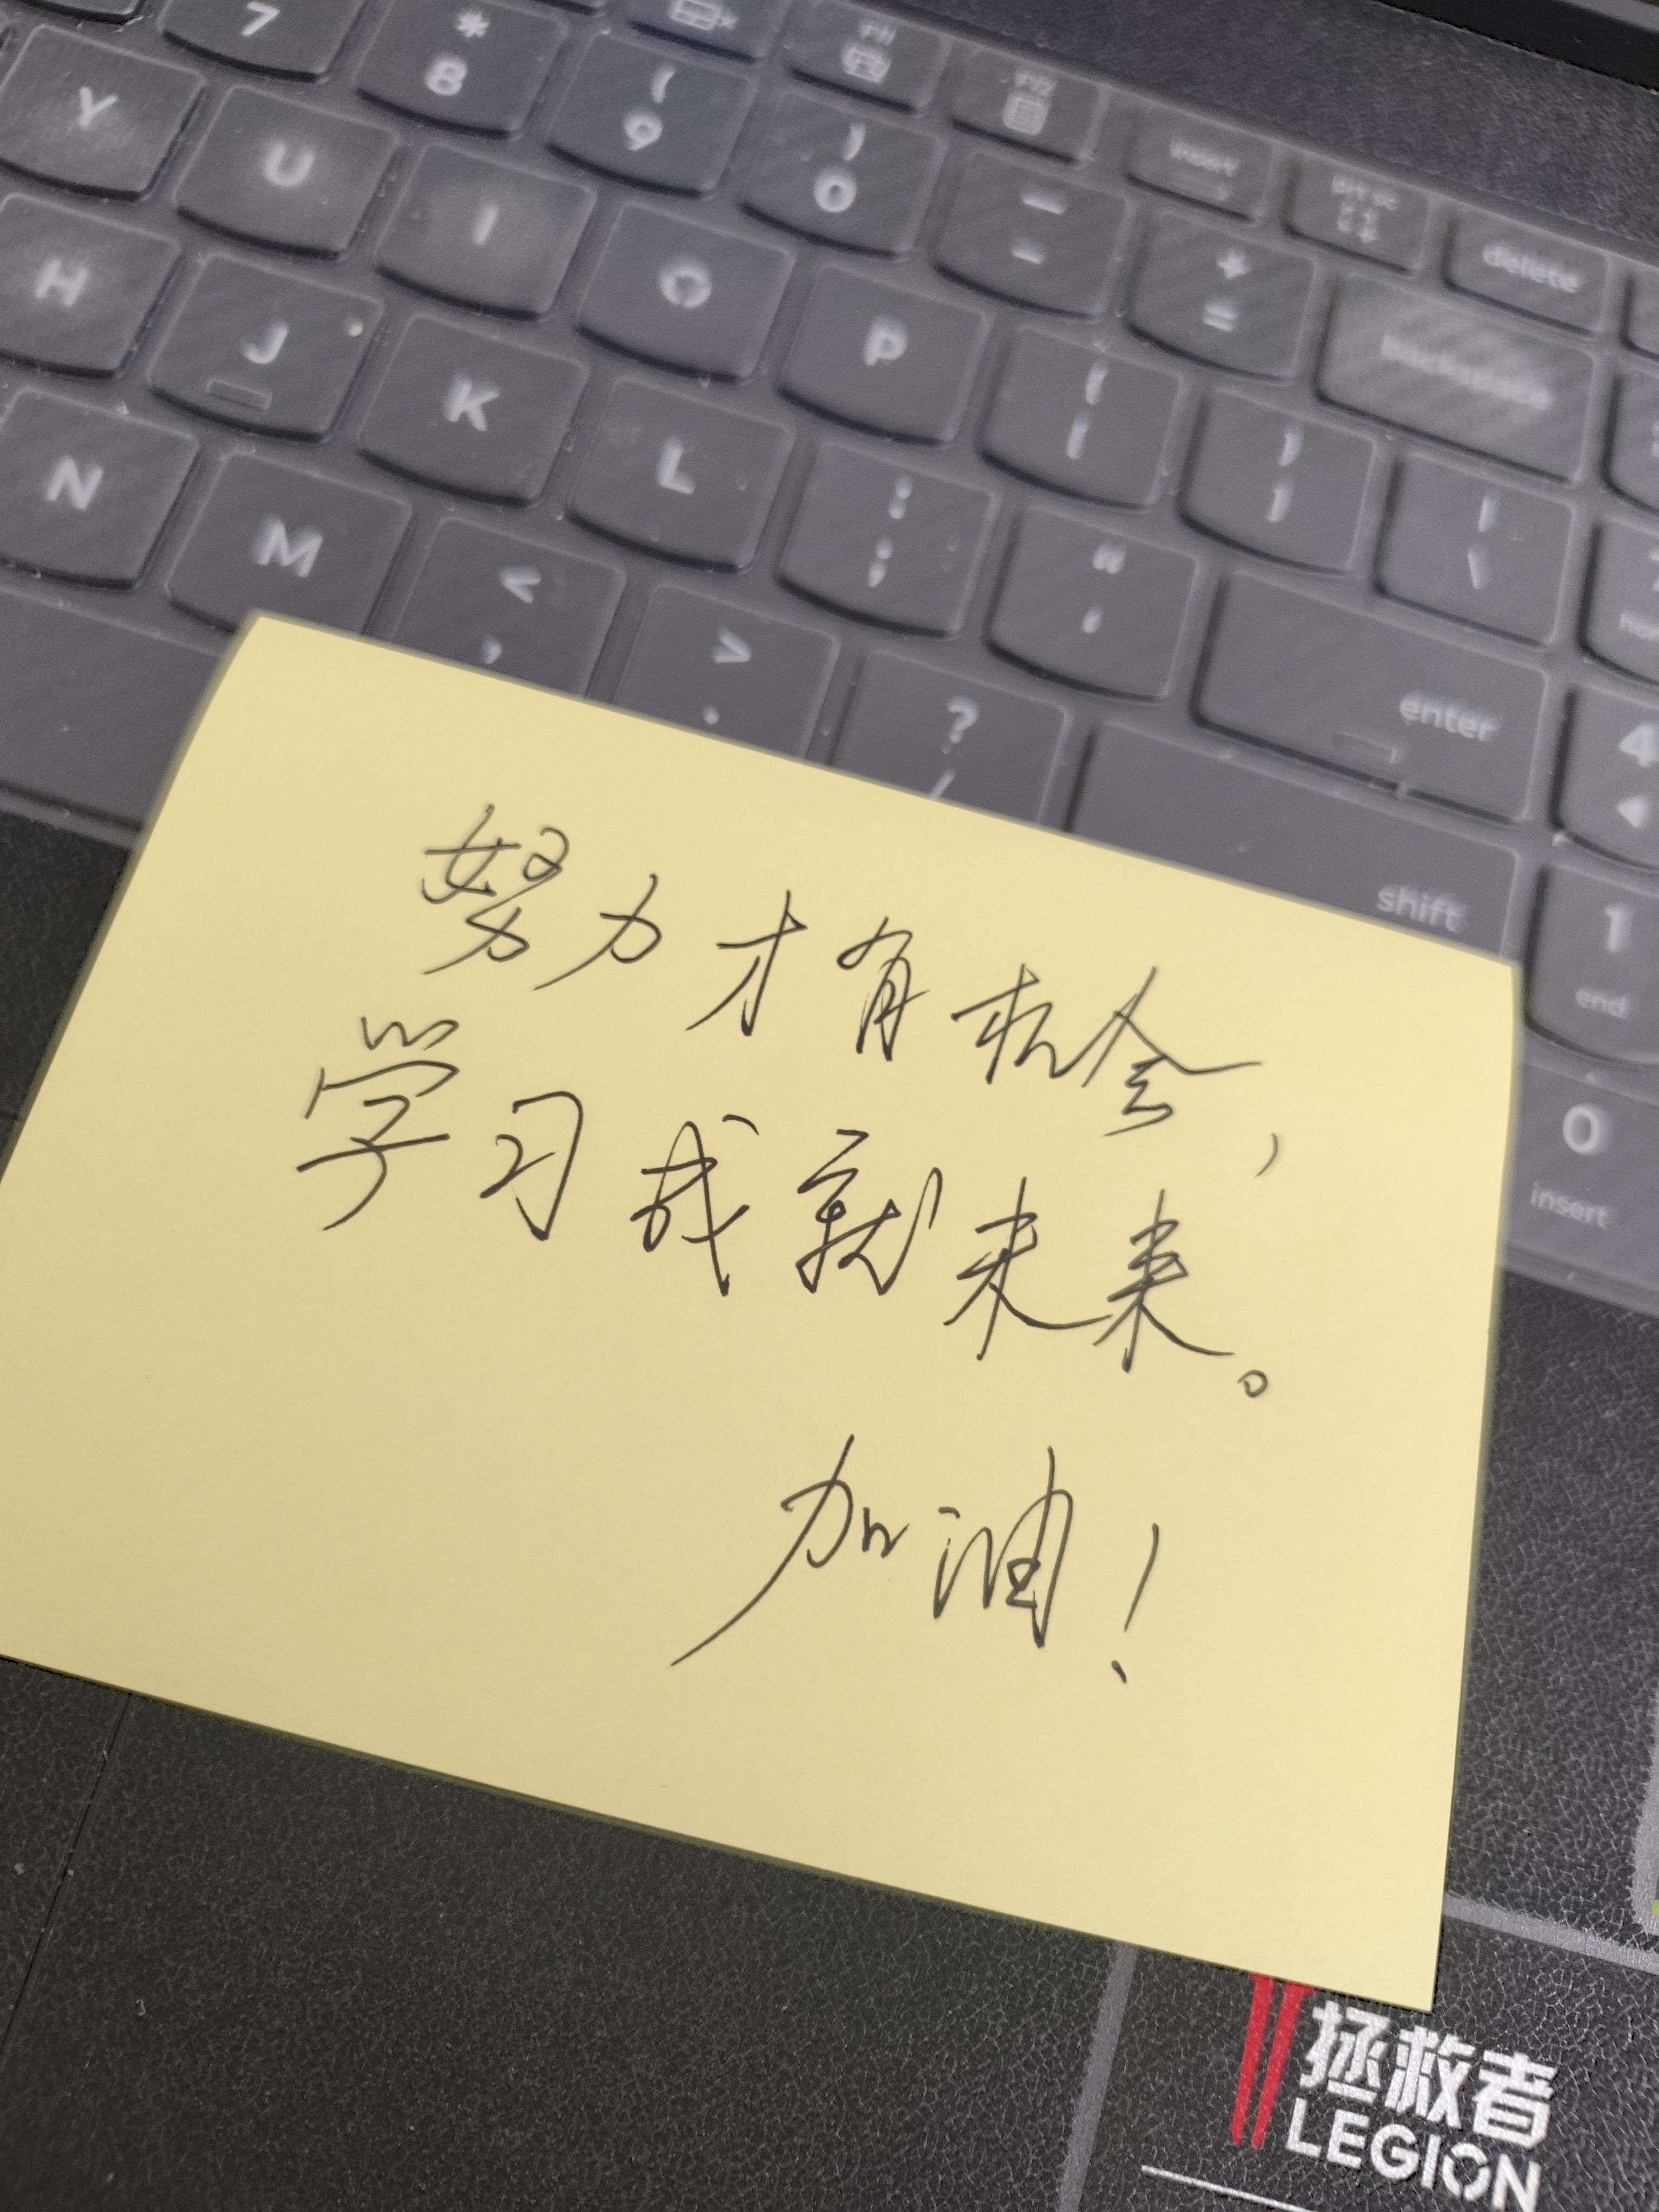 7 * 8 ( 9 ) 0 — - + =
F11 F12 insert prt sc delete
Y U I O P { [ } ] | \ backspace
H J K L : ; " ' enter
N M < , > . ? / shift
4
1 end
0 insert
努力才有机会，
学习成就未来。
加油！
拯救者
LEGION